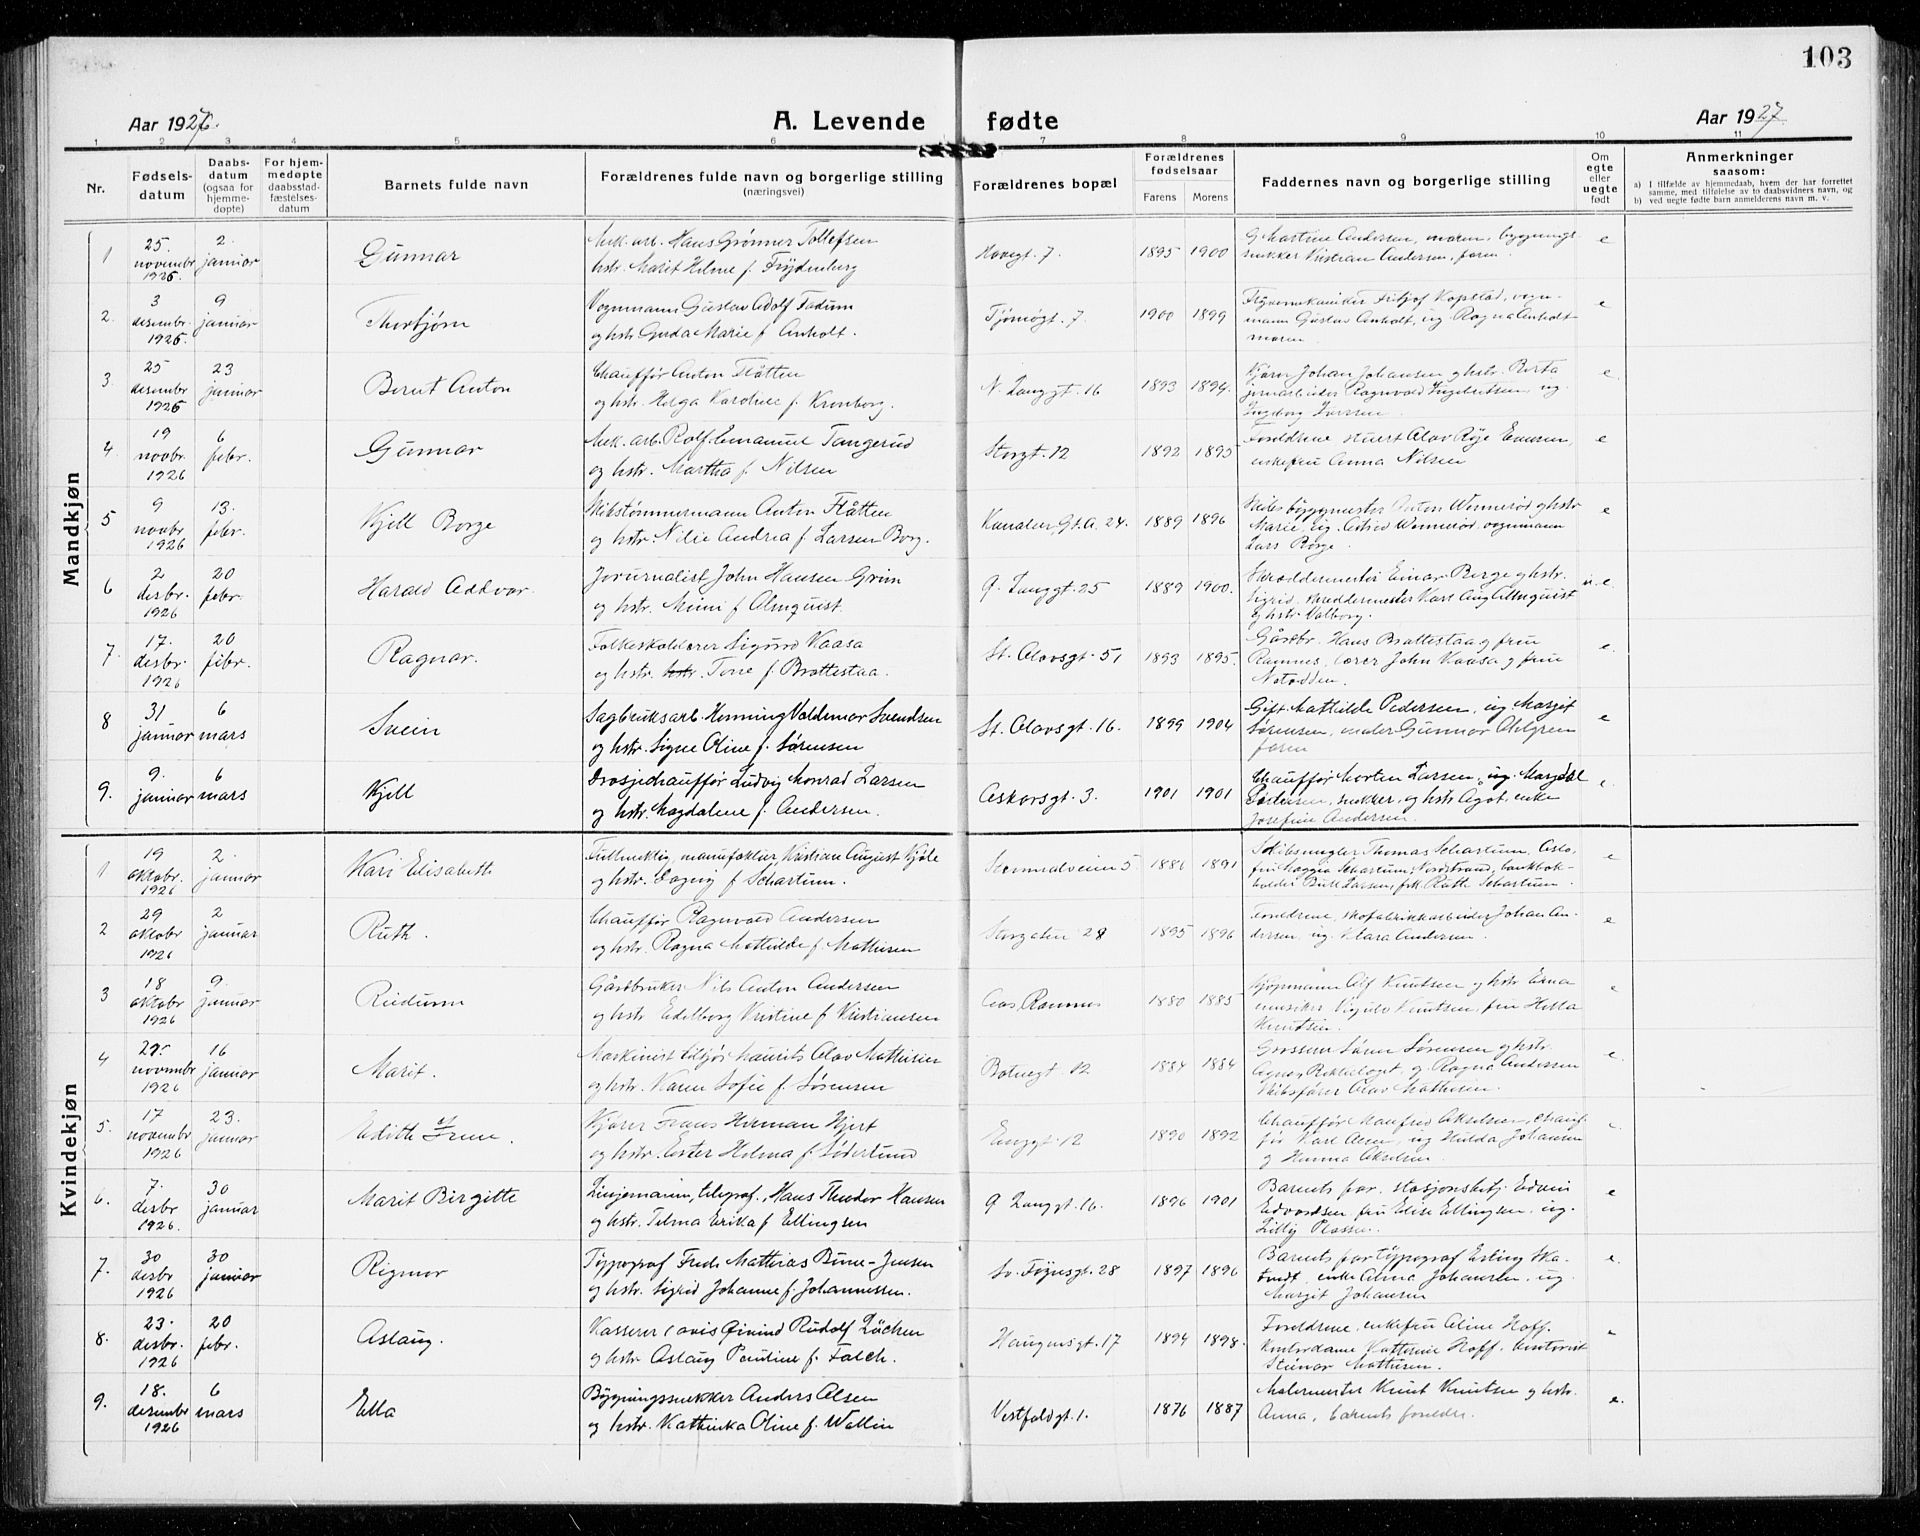 103
Aar 1926.
A. Levende fødte
Aar 1927.
1 2 3 4 5 6 7 8 9 10 11
Nr.
Fødsels-datum
Daabs-datum (ogsaa for hjemme-døpte)
For hjem-medøpte daabsstad-fæstelses-datum
Barnets fulde navn
Forældrenes fulde navn og borgerlige stilling (næringsvei)
Forældrenes bopæl
Forældrenes fødselsaar
Farens Morens
Faddernes navn og borgerlige stilling
Om egte eller uegte født
Anmerkninger saasom:
a) I tilfælde av hjemmedaab, hvem der har forrettet samme, med tilføielse av to daabsvidners navn, og
b) ved uegte fødte barn anmelderens navn m. v.
Mandkjøn
1 25. novembr 1926. 2. januar Gunnar
Mek. arb. Hans Grønner Tollefsen
hstr. Marit Helme f. Frydenberg
Hovegt. 7. 1895 1900
Martine Andersen, moren, bygnings-
snekker Kristian Andersen, faren. e
2. 3 desembr. 1926. 9 januar Thorbjørn
Vognmann Gustav Adolf Fadum
og hstr. Gerda Marie f. Anholt.
Tjømøgt. 7 1900 1899
Fritjof Kopstad, vogn-
mann Gustav Anholt, ug. Ragna Anholt
moren e
3. 25 desembr 1926 23 januar Bernt Anton
Chauffør Anton Flåtten
og hstr. Helga Karoline f. Kronborg.
N. Langgt. 16 1893 1894.
Kjører Johan Johansen og hstr. Berta
jernarbeider Ragnvald Ingebretsen, ug
Ingeborg Larssen. e.
4 19 novbr. 1926 6 febr. Gunnar
Mek. arb. Rolf Emanuel Tangerud
og hstr. Martha f. Nilsen
Storgt. 12 1892 1895
Foreldrene stuert Olav Røje Evensen,
enkefru Anna Nilsen e
5 9 novbr 1926 13. febr. Kjell Borge
Skibstømmermann Anton Flåtten
og hstr. Nilie Andrea f. Larsen Borg.
Kanalen, Gt. A. 24. 1889 1896
Skibsbyggmester Anton Wennerød og hstr
Marie, ug. Astrid Wennerød, vognmann
Lars Børge. e
6 2 desbr. 1926 20 febr. Harald Oddvar.
Jorurnalist John Hansen Grim
og hstr. Mimi f. Almquist.
Ø. Langgt. 25 1889 1900.
Skreddermester Einar Berge og hstr.
Sigrid, skreddermester Karl Aug. Almquist
og hstr Valborg. u. e.
7. 17. desbr. 1926 20 febr. Ragnar.
Folkeskolelærer Sigurd Kaasa
og hstr. Tone f. Brattestaa.
St. Olavsgt. 51 1893 1895.
Gårdbr. Hans Brattestaa og fru
Ramnes, lærer John Kaasa og frue
Notodden. e.
8 31 januar 6 mars Svein
Sagbruksarb. Henning Valdemar Svendsen
og hstr. Signe Oline f. Sørensen
St. Olavsgt. 16. 1899 1904
Gift Mathilde Pedersen, ug Margit
Sørensen, maler Gunnar Ahlgren
faren e
9. 9. januar 6 mars Kjell
Drosjechauffør Ludvig Monrad Larsen
og hstr. Magdalene f. Andersen.
Askersgt. 3. 1901 1901
Chauffør Morten Larsen, ug.
Pedersen, snekker, og hstr. Agot, enke
Josefine Andersen. e.
Kvindekjøn
1 19 oktobr. 1926 2. januar Kari Elisabeth
Fullmektig, manufaktur, Kristian August Kjøle
og hstr. Dagny f. Schartum.
5 1886 1891
Skibsmegler Thomas Schartum, Oslo
fru Maggia Schartum, Nordstrand, bankbok-
holder Larsen, frk. Ruth Schartum. e
2 29 oktobr 1926 2 januar Ruth.
Chauffør Ragnvald Andersen
og hstr. Ragna Mathilde f. Mathisen
Storgaten 28 1895 1896
Foreldrene, skofabrikkarbeider Johan An-
dersen, ug. Klara Andersen. e
3 18 oktobr 1926 9. januar Reidunn
Gårdbruker Nils Anton Andersen
og hstr Edelborg Kristine f. Kristiansen
Aas, Ramnes 1880 1885
Kjøpmann Alf Knutsen og hstr Erna
musiker Knutsen, fru Hilla
Knutsen. e
4 29. novembr 1926 16 januar Marit.
Maskinist tilsjøs Maurits Olav Mathisen
og hstr. Karen Sofie f. Sørensen
Botnegt 12 1884 1884
Grosserer Søren Sørensen og hstr.
Agnes, og Ragna Andersen
Skibsfører Olav Mathisen. e.
5. 17 novembr 1926 23. januar Edith Irene.
Kjører Frans Herman Hjert
og hstr. Ester Helma f. Söderlund
Enggt. 12 1890 1892
Chauffør Manfred Akselsen, chauf-
før Karl Olsen, ug Hilda Johansen
og Hanna Akselsen.
6. 7. desbr 1926. 30 januar Marit Birgitte
Linjemann, telegraf., Hans Theodor Hansen
og hstr. Telma Erika f. Ellingsen
Ø Langgt. 16. 1896 1901
Barnets far, stasjonsbetj. Edvin
Edvardsen, fru Elise Ellingsen, ug.
Lilly Plassen. e
7. 30 desbr 1926 30 januar Rigmor
Typograf Fred. Mathias Bune-Jensen
og hstr. Sigrid Johanne f. Johannessen.
Sv. Føynsgt. 28 1897 1896
Barnets far, typograf Erling
enke Alma Johansen, ug.
Margit Johansen e.
8. 23. desbr. 1926 20 febr. Aslaug.
Kasserer i avis Øivind Rudolf Løchen
og hstr. Aslaug Pauline f. Falch.
Haugersgt. 17 1894 1898.
Foreldrene, enkefru Aline Hoff.
Kathrine Hoff, kontorist
Steinar Mathisen.
9. 18. desembr 1926 6 mars Ella
Bygningssnekker Anders Olsen
og hstr. Kathinka Oline f. Wallin
Vestfoldgt. 1. 1876 1887
Malermester Knut Knutsen og hstr.
Anna, barnets foreldre. e.